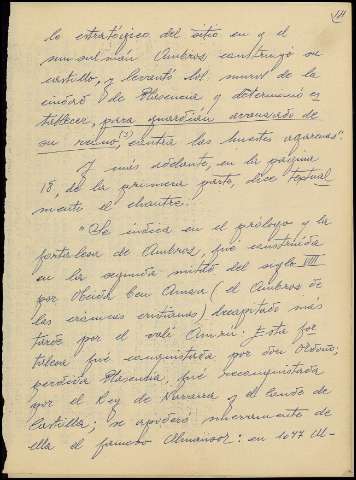 14
lo estratégico del sitio en q el
musulmán Ambros construyó su
castillo, y levantó los muros de la
ciudad de Plasencia y determinó es
tablecer, para guardián avanzado de
su reino, (3) contra las huestes agarenas".
Y más adelante, en la página
18, de la primera parte, dice textual
mente el chantre:
"Se indica en el prólogo y la
fortaleza de Ambros, fué construida
en la segunda mitad del siglo VIII
por Obeida Ben Amza (el Ambros de
las crónicas cristianas) decapitado más
tarde por el valí Amrú. Esta for
taleza fué conquistada por don Ordoño;
perdida Plasencia, fué reconquistada
por el Rey de Navarra y el Conde de
Castilla; se apoderó nuevamente de
ella el famoso Almanzor: en 1077 Al-